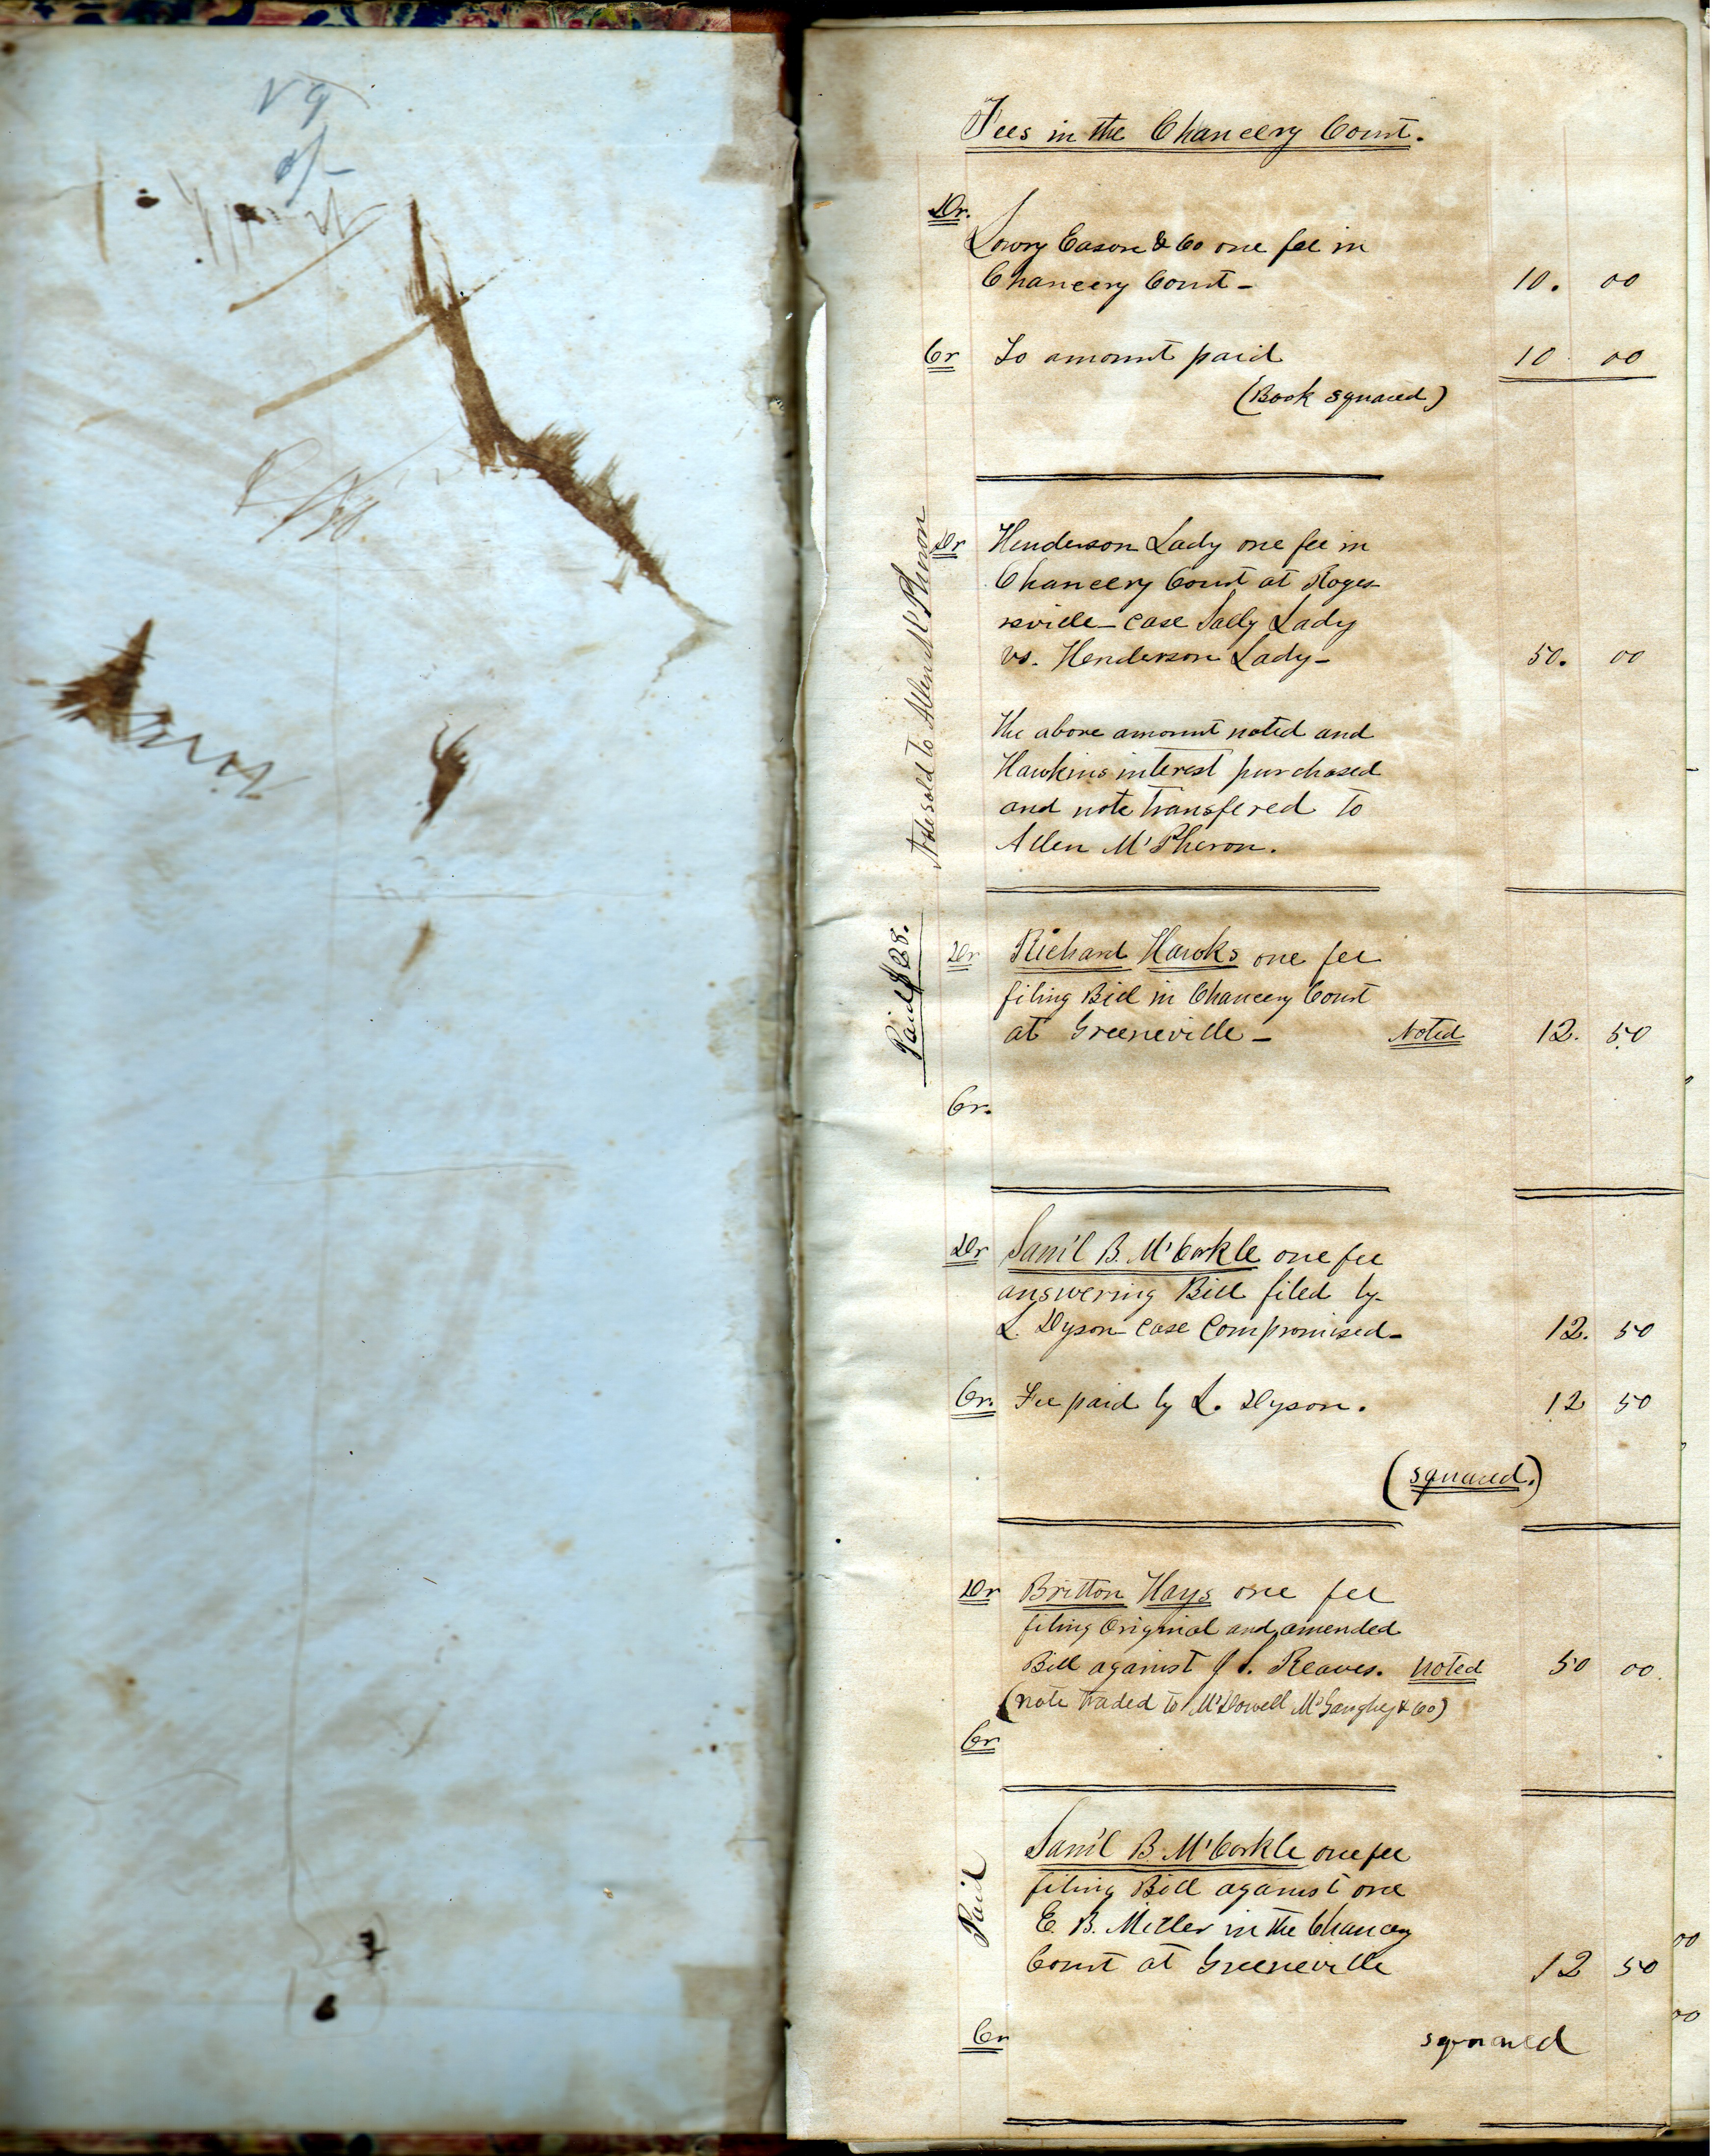 Fees in the Chancery Court.
Dr.
Lowry Eason & Co one fee in
Chancery Court – 10. 00
Cr To amount paid 10 00
(Book squared)
Note sold to Allen McPheron
Dr Henderson Lady one fee in
Chancery Court at Roger
rsville – case Sally Lady
vs. Henderson Lady – 50. 00
The above amount noted and
Hawkins interest purchased
and note transfered to
Allen M'Pheron.
Paid $28.
Dr Richard Hawks one fee
filing Bill in Chancery Court
at Greeneville – Noted 12. 50
Cr.
Dr Sam'l B. M'Corkle one fee
answering Bill filed by
L. Dyson case compromised – 12. 50
Cr. Fee paid by L. Dyson. 12 50
(squared.)
Dr Britton Hays one fee
filing original and amended
Bill against J. S. Reaves. Noted 50 00
(note traded to M'Dowell M'Gaughey & Co)
Cr
Paid
Sam'l B. M'Corkle one fee
filing Bill against one
E. B. Miller in the Chancey
Court at Greeneville 12 50
Cr squared
00
00